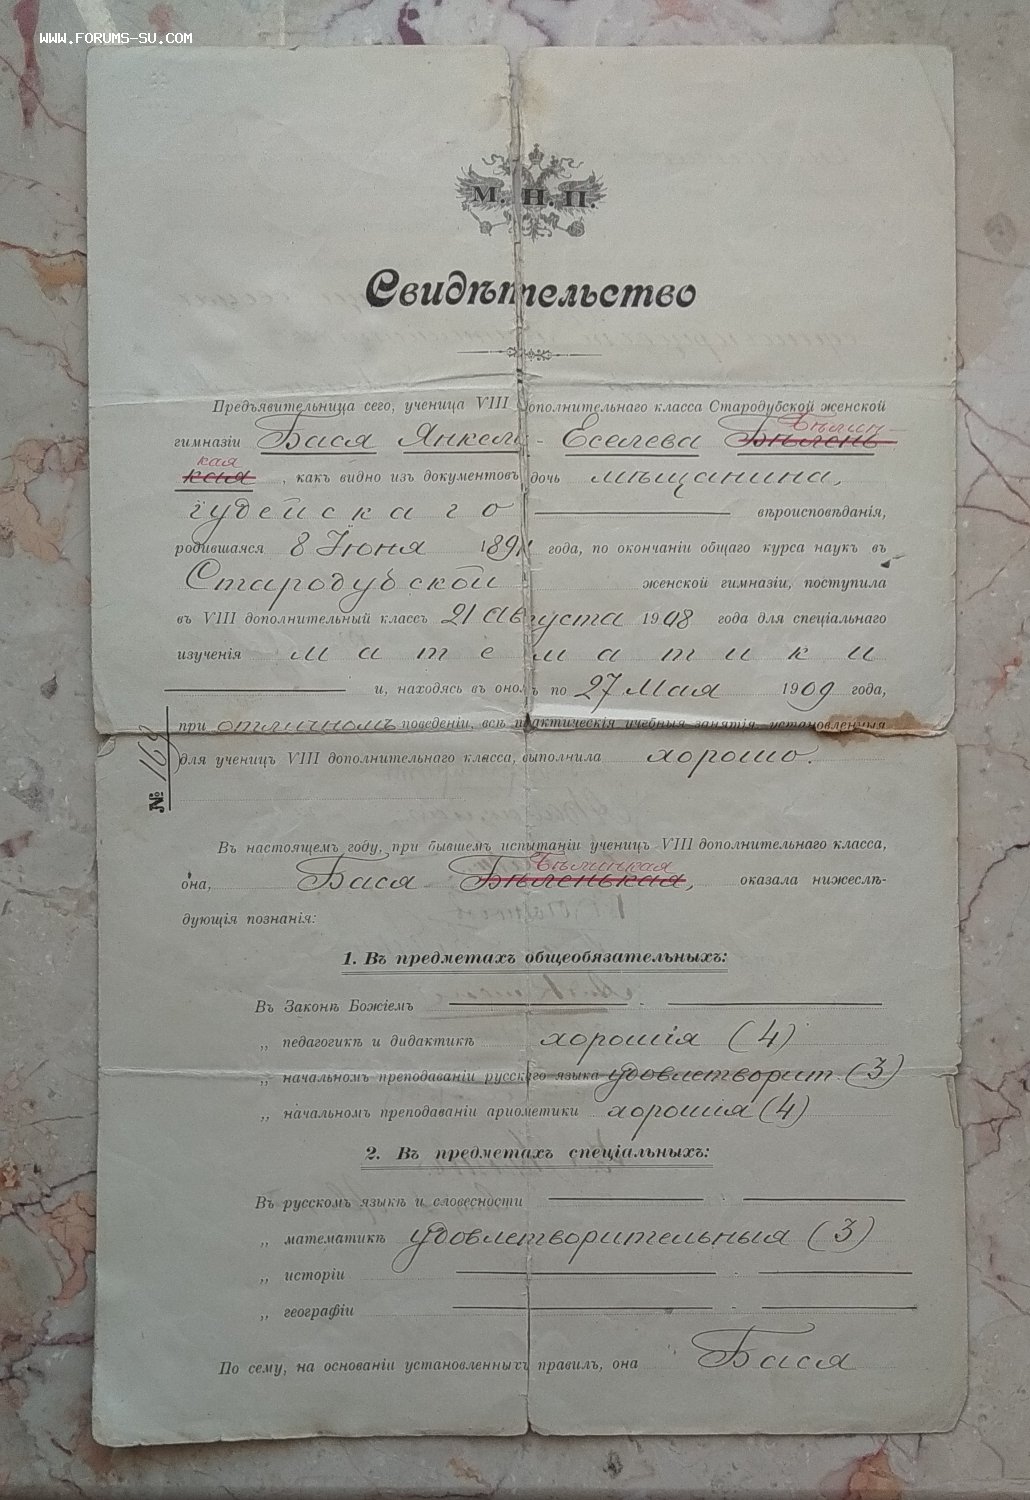 WWW.FORUMS-SU.COM
М. Н. П.
Свидѣтельство
Предъявительница сего, ученица VIII дополнительнаго класса Стародубской женской
Бѣлин-
гимназіи Бася Янкель-Еселева Бѣлень-
кая
кая, какъ видно изъ документовъ, дочь мѣщанина,
іудейскаго вѣроисповѣданія,
родившаяся 8 Іюня года, по окончаніи общаго курса наукъ въ
Стародубской женской гимназіи, поступила
въ VIII дополнительный классъ 21 августа 1908 года для спеціальнаго
изученія математики
и, находясь въ ономъ по 27 Мая 1909 года,
при отличномъ поведеніи, всѣ практическія учебныя занятія, установленныя
для ученицъ VIII дополнительнаго класса, выполнила хорошо.
№ 163
Въ настоящемъ году, при бывшемъ испытаніи ученицъ VIII дополнительнаго класса,
Бѣлинькая
она, Бася Бѣленькая, оказала нижеслѣ-
дующія познанія:
1. Въ предметахъ общеобязательныхъ:
Въ Законѣ Божіемъ
„ педагогикѣ и дидактикѣ хорошія (4)
„ начальномъ преподаваніи русскаго языка удовлетворит. (3)
„ начальномъ преподаваніи ариѳметики хорошія (4)
2. Въ предметахъ спеціальныхъ:
Въ русскомъ языкѣ и словесности
„ математикѣ удовлетворительныя (3)
„ исторіи
„ географіи
По сему, на основаніи установленныхъ правилъ, она Бася